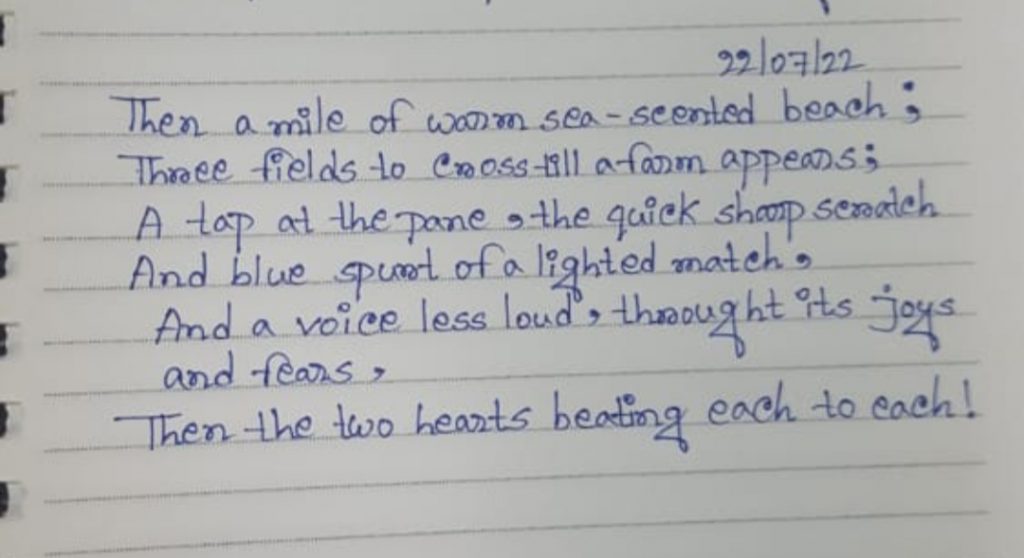 22/07/22
Then a mile of warm sea-scented beach;
Three fields to cross till a farm appears;
A tap at the pane, the quick sharp scratch
And blue spurt of a lighted match,
And a voice less loud, throught its joys
and fears,
Then the two hearts beating each to each!